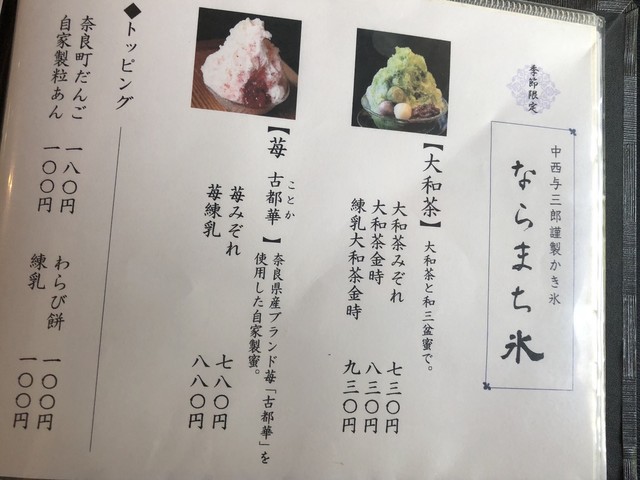 季節限定
中西与三郎謹製かき氷
ならまち氷
【大和茶】大和茶と和三盆蜜で。
大和茶みぞれ 七三〇円
大和茶金時 八三〇円
練乳大和茶金時 九三〇円
ことか
【苺 古都華】奈良県産ブランド苺「古都華」を
使用した自家製蜜。
苺みぞれ 七八〇円
苺練乳 八八〇円
◆トッピング
奈良町だんご 一八〇円
自家製粒あん 一〇〇円
わらび餅 一〇〇円
練乳 一〇〇円